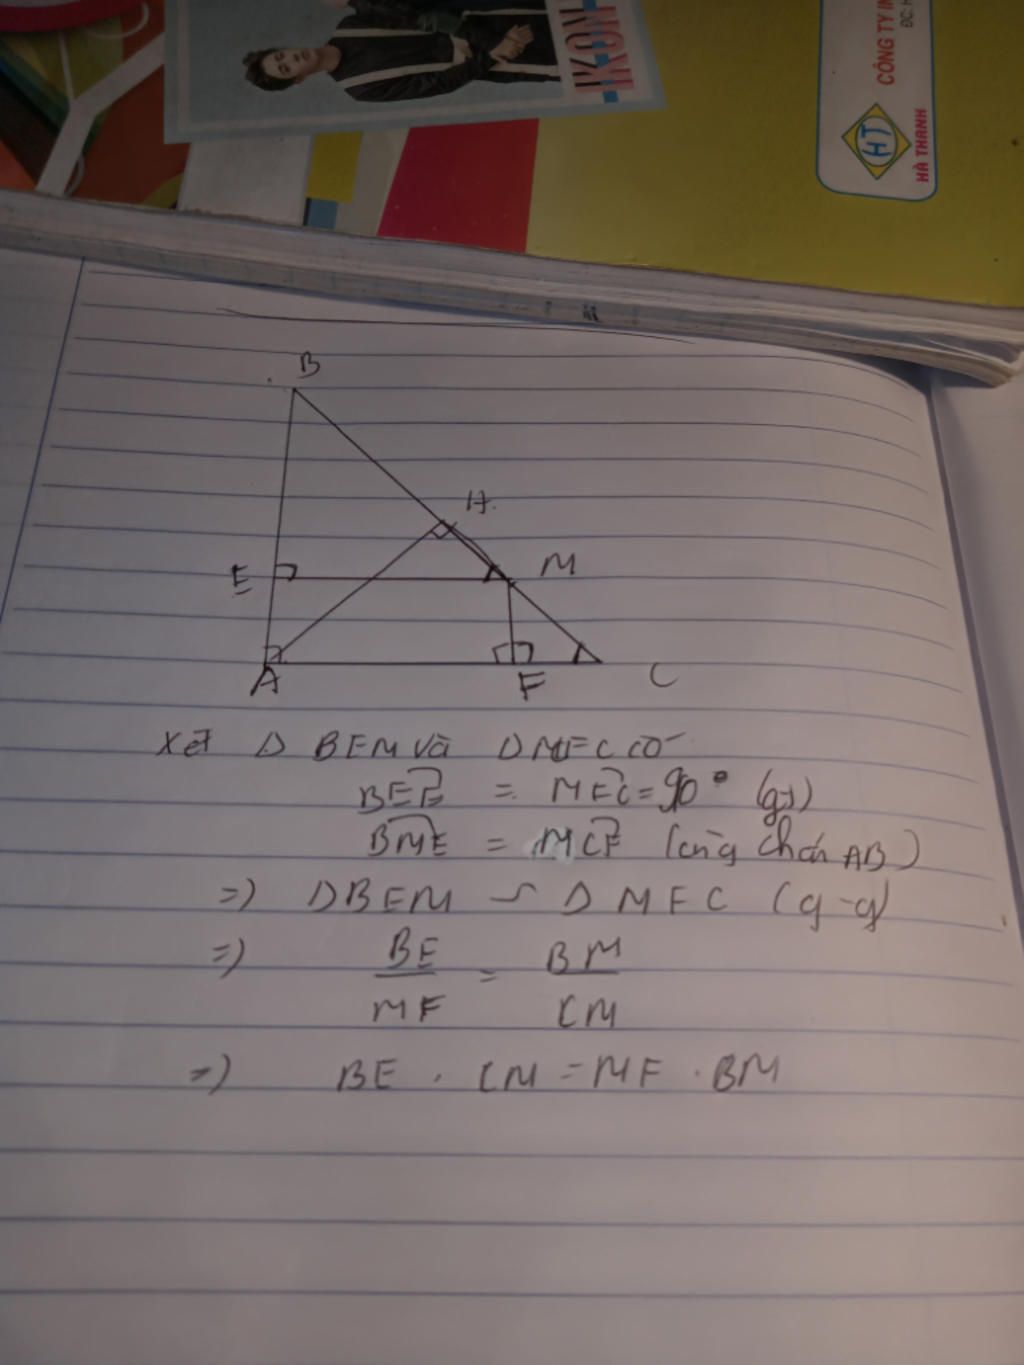 IKON
CÔNG TY IN
ĐC: H
HT
HÀ THANH
B
H
E
M
A
F
C
Xét Δ BEM và Δ MFC có
BEE = MFC = 90° (gt)
BME = MCF (cùng chắn AB)
=> ΔBEM ∽ Δ MFC (g-g)
=> BE/MF = BM/CM
=> BE . CM = MF . BM